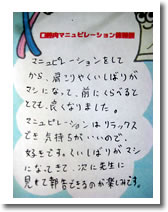 マニュピレーション
マニュピレーションをして
から、肩こりやくいしばりが
マシになって、前にくらべると
とても良くなりました。
マニュピレーションはリラックス
でき気持ちがいいので、
好きです。くいしばりがマシ
になってきて、次に先生に
見せて報告できるのが楽しみです。